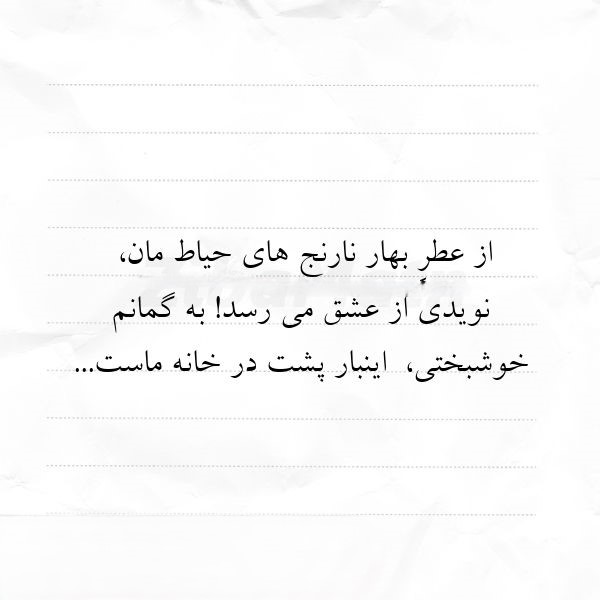 از عطرِ بهار نارنج های حیاط مان،
نویدی از عشق می رسد! به گمانم
خوشبختی، اینبار پشت در خانه ماست...